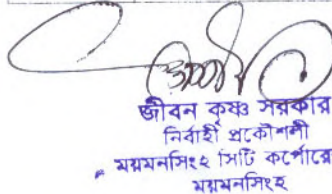 জীবন কৃষ্ণ সরকার
নির্বাহী প্রকৌশলী
ময়মনসিংহ সিটি কর্পোরে
ময়মনসিংহ